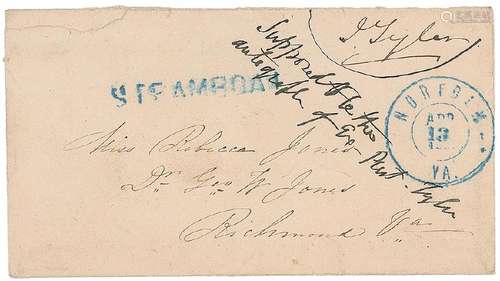 J Tyler
Supposed to be the
autograph of Ex Prest. Tyler
STEAMBOAT
NORFOLK
APR
13
VA.
Miss Rebecca Jones
Dr Geo W Jones
Richmond Va